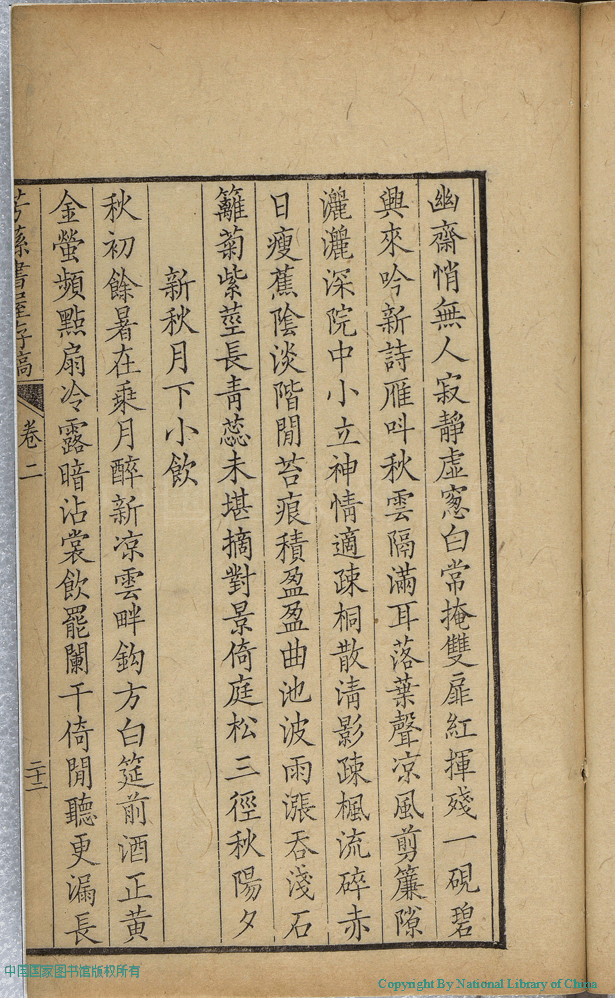 幽齋悄無人寂靜虛窻白常掩雙扉紅揮殘一硯碧
興來吟新詩雁呌秋雲隔滿耳落葉聲凉風剪簾隙
灑灑深院中小立神情適疎桐散清影疎楓流碎赤
日瘦蕉陰淡階閒苔痕積盈盈曲池波雨漲吞淺石
籬菊紫莖長青蕊未堪摘對景倚庭松三徑秋陽夕
新秋月下小飲
秋初餘暑在乘月醉新凉雲畔鈎方白筵前酒正黄
金螢頻點扇冷露暗沾裳飲罷闌干倚閒聽更漏長
書屋存稿
卷二
二十二
中国国家图书馆版权所有
Copyright By National Library of China